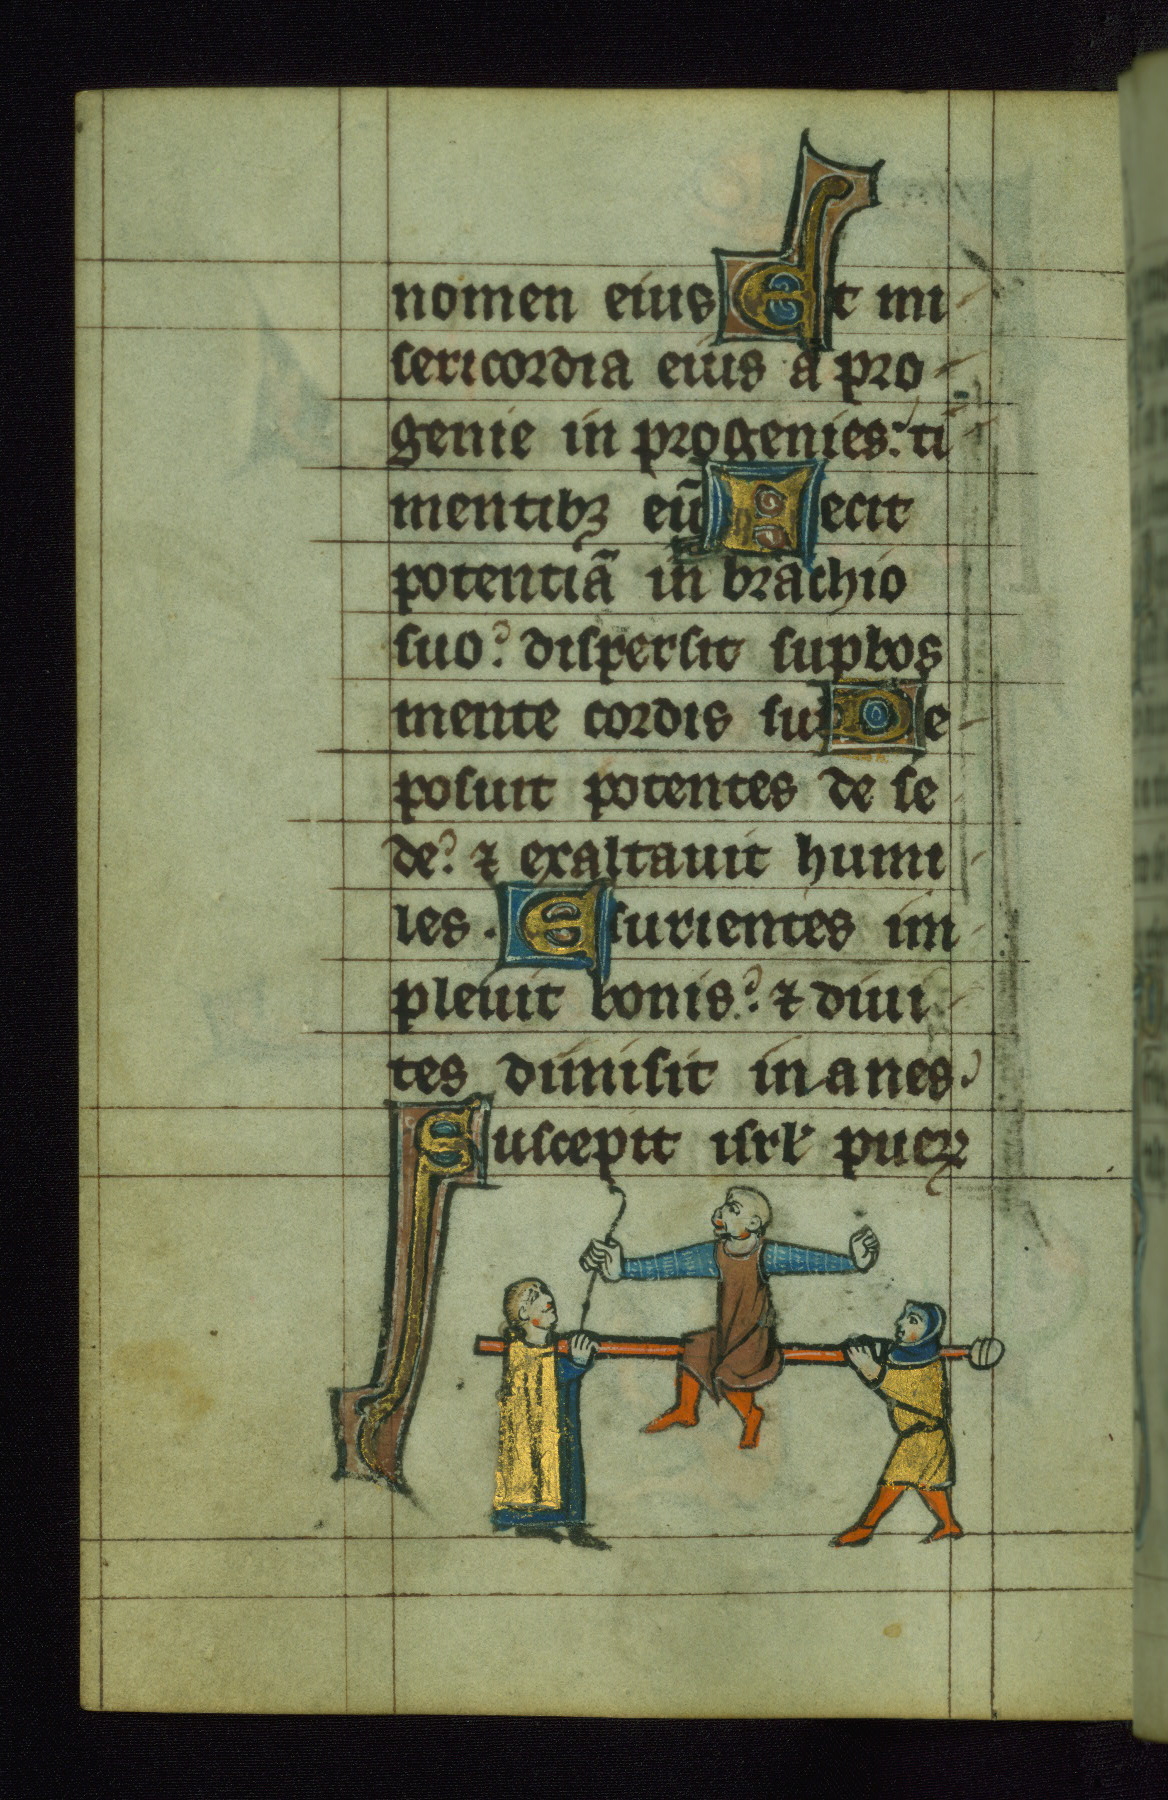 nomen eius Et mi
sericordia eius a pro
genie in progenies: ti
mentibꝫ eū Fecit
potentiā in brachio
suo? dispersit supbos
mente cordis sui De
posuit potentes de se
de? ⁊ exaltauit humi
les . Esurientes im
pleuit bonis? ⁊ diui
tes dimisit inanes
Suscepit isrl' pueꝝ